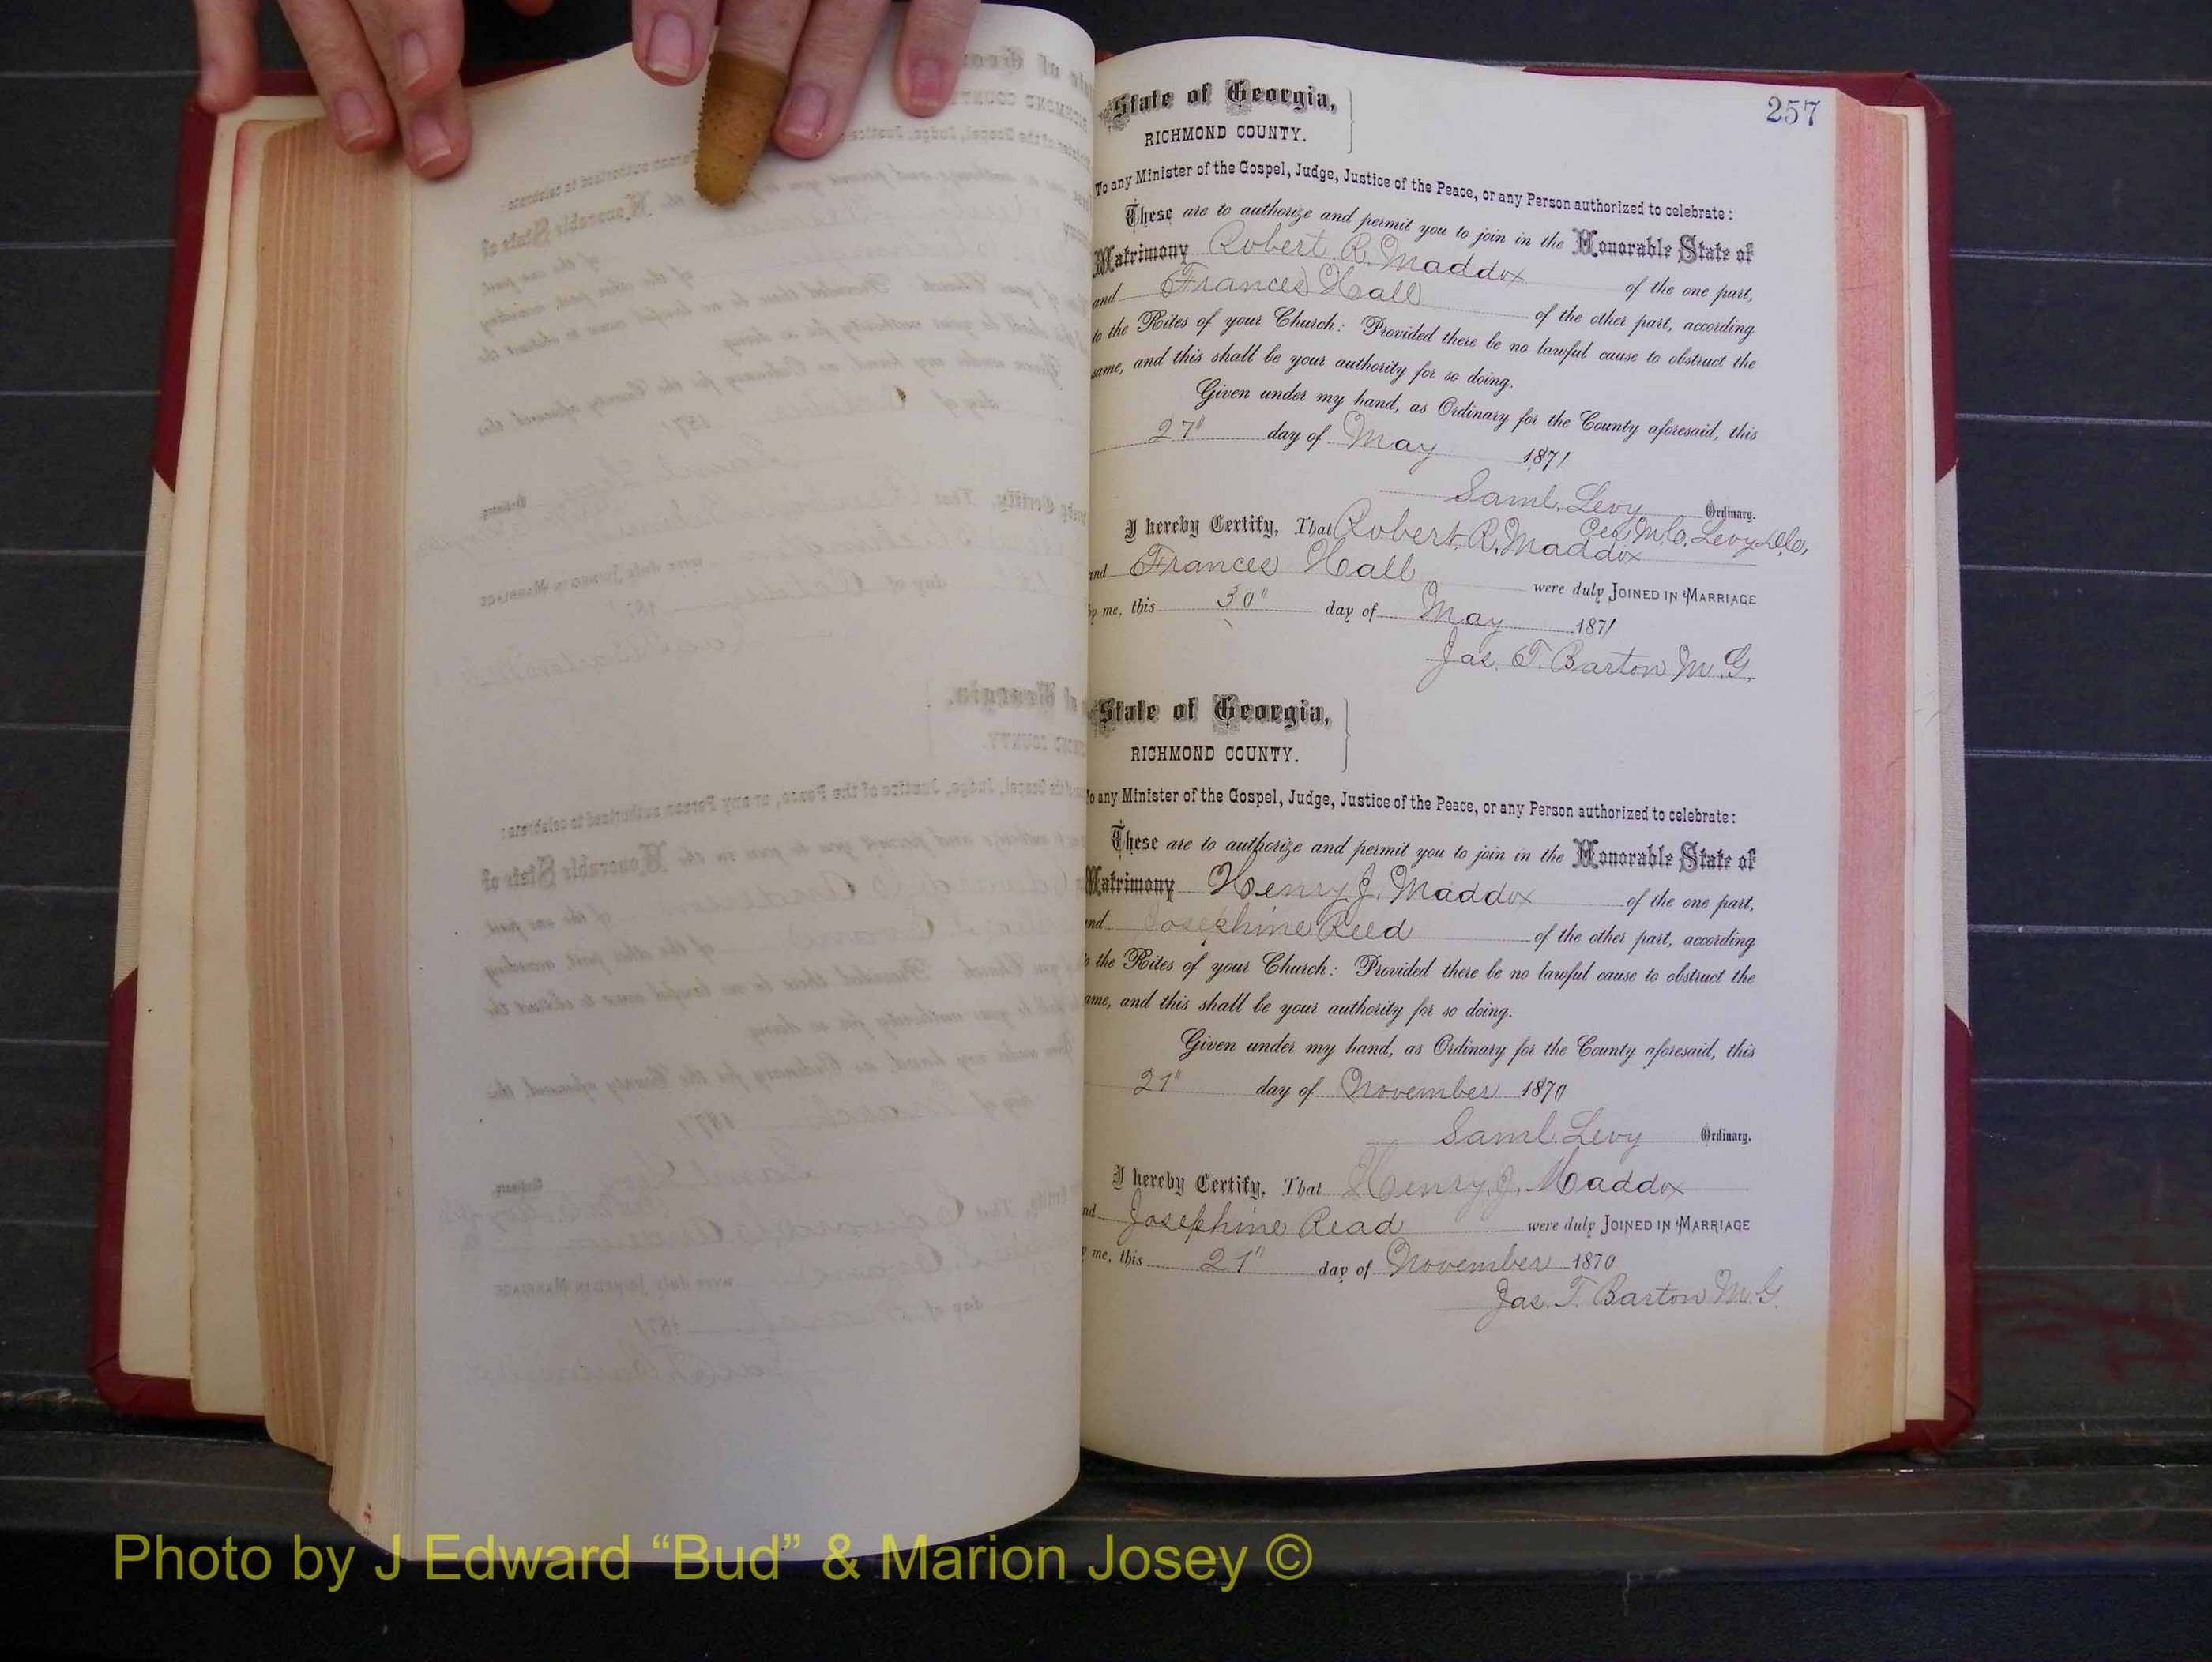 257
State of Georgia,
RICHMOND COUNTY.
To any Minister of the Gospel, Judge, Justice of the Peace, or any Person authorized to celebrate:
These are to authorize and permit you to join in the Honorable State of
Matrimony Robert R. Maddox of the one part,
and Frances Hall of the other part, according
to the Rites of your Church: Provided there be no lawful cause to obstruct the
same, and this shall be your authority for so doing.
Given under my hand, as Ordinary for the County aforesaid, this
27" day of May 1871
Saml. Levy Ordinary.
Per M.C. Levy
I hereby Certify, That Robert R. Maddox
and Frances Hall were duly JOINED IN MARRIAGE
by me, this 30" day of May 1871
Jas. T. Barton M.G.
State of Georgia,
RICHMOND COUNTY.
To any Minister of the Gospel, Judge, Justice of the Peace, or any Person authorized to celebrate:
These are to authorize and permit you to join in the Honorable State of
Matrimony Henry J. Maddox of the one part,
and Josephine Reed of the other part, according
to the Rites of your Church: Provided there be no lawful cause to obstruct the
same, and this shall be your authority for so doing.
Given under my hand, as Ordinary for the County aforesaid, this
21" day of November 1870
Saml. Levy Ordinary.
I hereby Certify, That Henry J. Maddox
and Josephine Read were duly JOINED IN MARRIAGE
by me, this 21" day of November 1870
Jas. T. Barton M.G.
Photo by J Edward “Bud” & Marion Josey ©